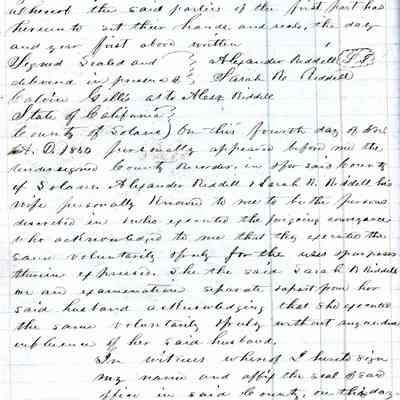 whereof the said parties of the first part has
hereunto set their hands and seals, the day
and year first above written
Signed Sealed and } Alexander Riddell
delivered in presence of } Sarah R Riddell
Calvin Gillis as to Alexr Riddell
State of California }
County of Solano } On this fourth day of
A. D. 1850 personally appeared before me the
undersigned County Recorder, in & for said County
of Solano Alexander Riddell & Sarah R. Riddell his
wife personally known to me to be the persons
described in & who executed the foregoing conveyance
who acknowledged to me that they executed the
same voluntarily & freely for the uses & purposes
therein expressed. She the said Sarah R Riddell
on an examination separate & apart from her
said husband acknowledging that she executed
the same voluntarily & freely without any undue
influence of her said husband.
In witness whereof I hereto sign
my name and affix the seal of said
office in said County, on this day